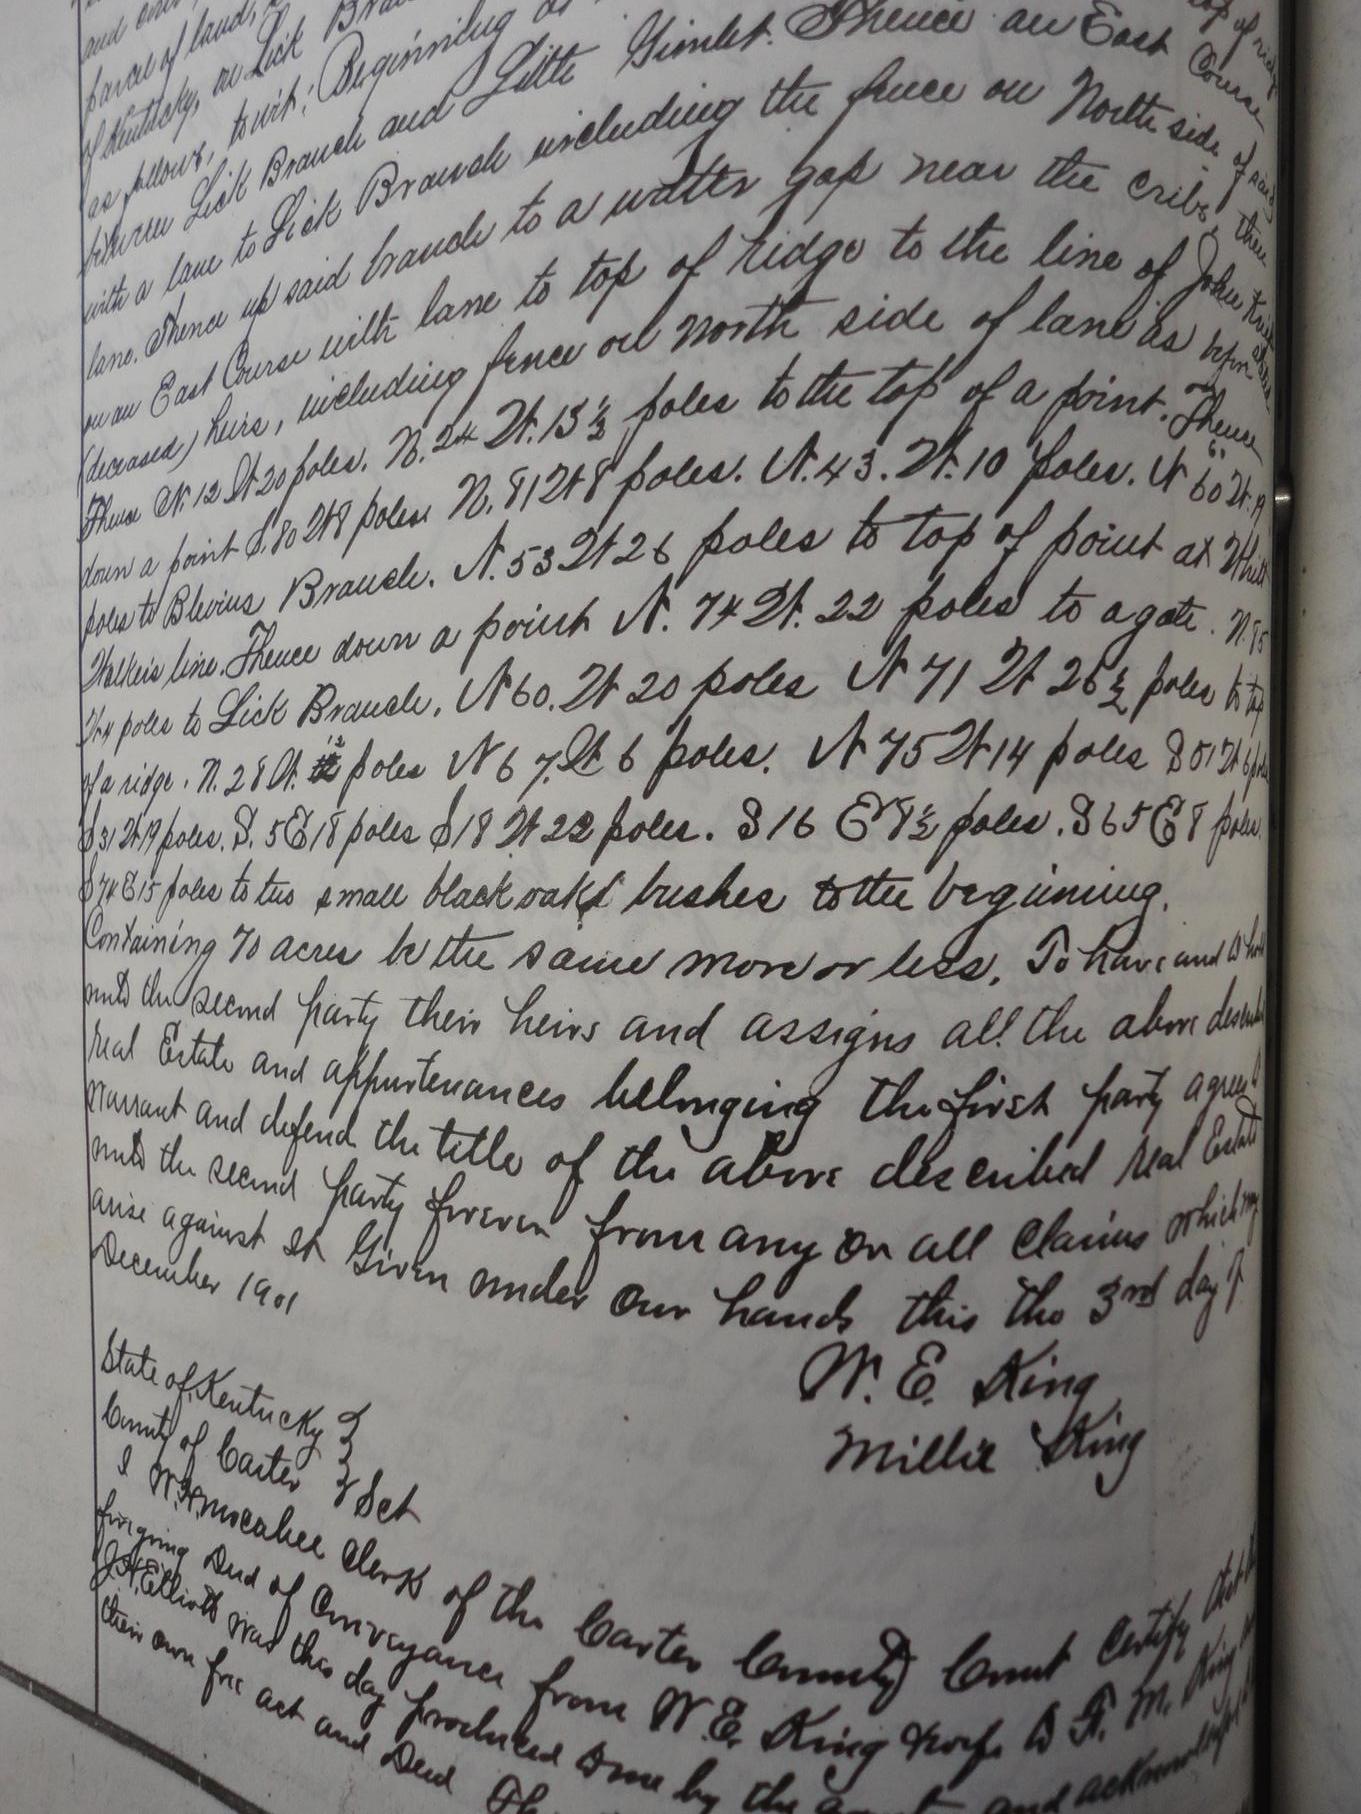 parcel of land,
of Kentucky, on Lick Branch
as follows, to wit; Beginning at
between Lick Branch and Little Gimlet. Thence an East Course
with a lane to Lick Branch including the fence on North side of said
lane. Thence up said branch to a watter gap near the cribs, then
on an East Course with lane to top of ridge to the line of John
(deceased) heirs, including fence on north side of lane as
Thence N. 12 W 20 poles. N. 24 W. 13 ½ poles to the top of a point. Thence
down a point S. 80 W 8 poles N. 81 W 8 poles. N. 43. W. 10 poles. N 60 W. 19
poles to Blevins Branch. N. 53 W 26 poles to top of point at
Walkers line. Thence down a point N. 74 W. 22 poles to a gate. N. 85
W 4 poles to Lick Branch, N 60. W 20 poles N 71 W 26 ½ poles to top
of a ridge. N. 28 W. poles N 67. W 6 poles. N 75 W 14 poles
S 31 W 19 poles. S. 5 E 18 poles S 18 W 22 poles. S 16 E 8 ½ poles. S 65 E 8 poles.
S 74 E 15 poles to two small black oaks bushes to the beginning.
Containing 70 acres be the same more or less. To have and to hold
unto the second party their heirs and assigns all the above described
real Estate and appurtenances belonging the first party agree to
warrant and defend the title of the above described real Estate
unto the second party forever from any or all claims which may
arise against it Given under our hands this the 3rd day of
December 1901
W. E. King
Millie King
State of Kentucky }
County of Carter } Sct
I W. H. McCabee Clerk of the Carter County Court Certify that the
foregoing Deed of Conveyance from W. E. King & wife to F. M. King
J. H. Elliott was this day produced to me by the and acknowledged
their own free act and Deed